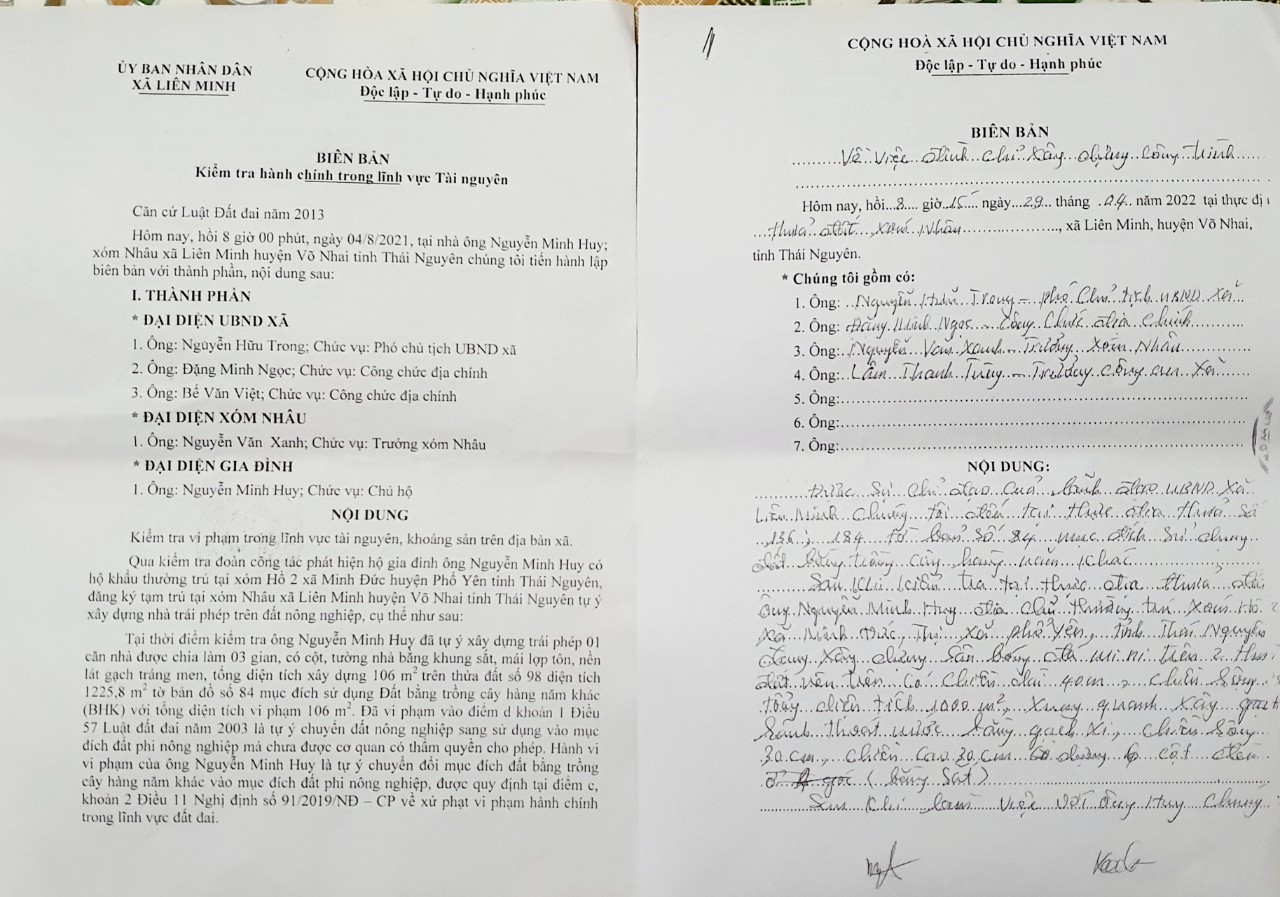 ỦY BAN NHÂN DÂN
XÃ LIÊN MINH
CỘNG HÒA XÃ HỘI CHỦ NGHĨA VIỆT NAM
Độc lập - Tự do - Hạnh phúc
BIÊN BẢN
Kiểm tra hành chính trong lĩnh vực Tài nguyên
Căn cứ Luật Đất đai năm 2013
Hôm nay, hồi 8 giờ 00 phút, ngày 04/8/2021, tại nhà ông Nguyễn Minh Huy;
xóm Nhâu xã Liên Minh huyện Võ Nhai tỉnh Thái Nguyên chúng tôi tiến hành lập
biên bản với thành phần, nội dung sau:
I. THÀNH PHẦN
* ĐẠI DIỆN UBND XÃ
1. Ông: Nguyễn Hữu Trong; Chức vụ: Phó chủ tịch UBND xã
2. Ông: Đặng Minh Ngọc; Chức vụ: Công chức địa chính
3. Ông: Bế Văn Việt; Chức vụ: Công chức địa chính
* ĐẠI DIỆN XÓM NHÂU
1. Ông: Nguyễn Văn Xanh; Chức vụ: Trưởng xóm Nhâu
* ĐẠI DIỆN GIA ĐÌNH
1. Ông: Nguyễn Minh Huy; Chức vụ: Chủ hộ
NỘI DUNG
Kiểm tra vi phạm trong lĩnh vực tài nguyên, khoáng sản trên địa bàn xã.
Qua kiểm tra đoàn công tác phát hiện hộ gia đình ông Nguyễn Minh Huy có
hộ khẩu thường trú tại xóm Hồ 2 xã Minh Đức huyện Phổ Yên tỉnh Thái Nguyên,
đăng ký tạm trú tại xóm Nhâu xã Liên Minh huyện Võ Nhai tỉnh Thái Nguyên tự ý
xây dựng nhà trái phép trên đất nông nghiệp, cụ thể như sau:
Tại thời điểm kiểm tra ông Nguyễn Minh Huy đã tự ý xây dựng trái phép 01
căn nhà được chia làm 03 gian, có cột, tường nhà bằng khung sắt, mái lợp tôn, nền
lát gạch tráng men, tổng diện tích xây dựng 106 m² trên thửa đất số 98 diện tích
1225,8 m² tờ bản đồ số 84 mục đích sử dụng Đất bằng trồng cây hàng năm khác
(BHK) với tổng diện tích vi phạm 106 m². Đã vi phạm vào điểm d khoản 1 Điều
57 Luật đất đai năm 2003 là tự ý chuyển đất nông nghiệp sang sử dụng vào mục
đích đất phi nông nghiệp mà chưa được cơ quan có thẩm quyền cho phép. Hành vi
vi phạm của ông Nguyễn Minh Huy là tự ý chuyển đổi mục đích đất bằng trồng
cây hàng năm khác vào mục đích đất phi nông nghiệp, được quy định tại điểm c,
khoản 2 Điều 11 Nghị định số 91/2019/NĐ – CP về xử phạt vi phạm hành chính
trong lĩnh vực đất đai.
CỘNG HOÀ XÃ HỘI CHỦ NGHĨA VIỆT NAM
Độc lập - Tự do - Hạnh phúc
BIÊN BẢN
Về việc đình chỉ xây dựng công trình
Hôm nay, hồi 8 giờ 15 ngày 29 tháng 04 năm 2022 tại thực đị
thửa đất xóm Nhâu, xã Liên Minh, huyện Võ Nhai,
tỉnh Thái Nguyên.
* Chúng tôi gồm có:
1. Ông: Nguyễn Hữu Trong - phó Chủ tịch UBND xã
2. Ông: Đặng Minh Ngọc - Công chức địa chính
3. Ông: Nguyễn Văn Xanh - Trưởng xóm Nhâu
4. Ông: Lâm Thanh Tùng - Trưởng công an xã
5. Ông:
6. Ông:
7. Ông:
NỘI DUNG:
Được sự chỉ đạo của lãnh đạo UBND xã
Liên Minh chúng tôi đến tại thực địa thửa số
136, 184 tờ bản số 84 mục đích sử dụng
đất bằng trồng cây hàng năm khác
Sau khi kiểm tra tại thực địa thửa đất
ông Nguyễn Minh Huy địa chỉ thường trú xóm Hồ 2
xã Minh Đức, Thị xã phổ yên, tỉnh Thái Nguyên
đang xây dựng sân bóng đá mi ni trên 2 thửa
đất nêu trên có chiều dài 40m, chiều rộng
tổng diện tích 1000 m², xung quanh xây
rãnh thoát nước bằng gạch xi, chiều rộng
30 cm, chiều cao 30 cm có dựng 6 cột đèn
(bằng sắt)
Sau khi làm việc với ông Huy chúng